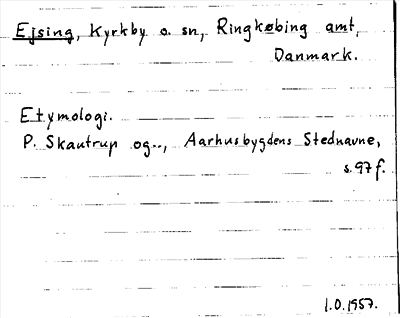 Ejsing, Kyrkby o. sn, Ringkøbing amt,
Danmark.
Etymologi.
P. Skautrup og.., Aarhusbygdens Stednavne,
s. 97 f.
1.0.1957.